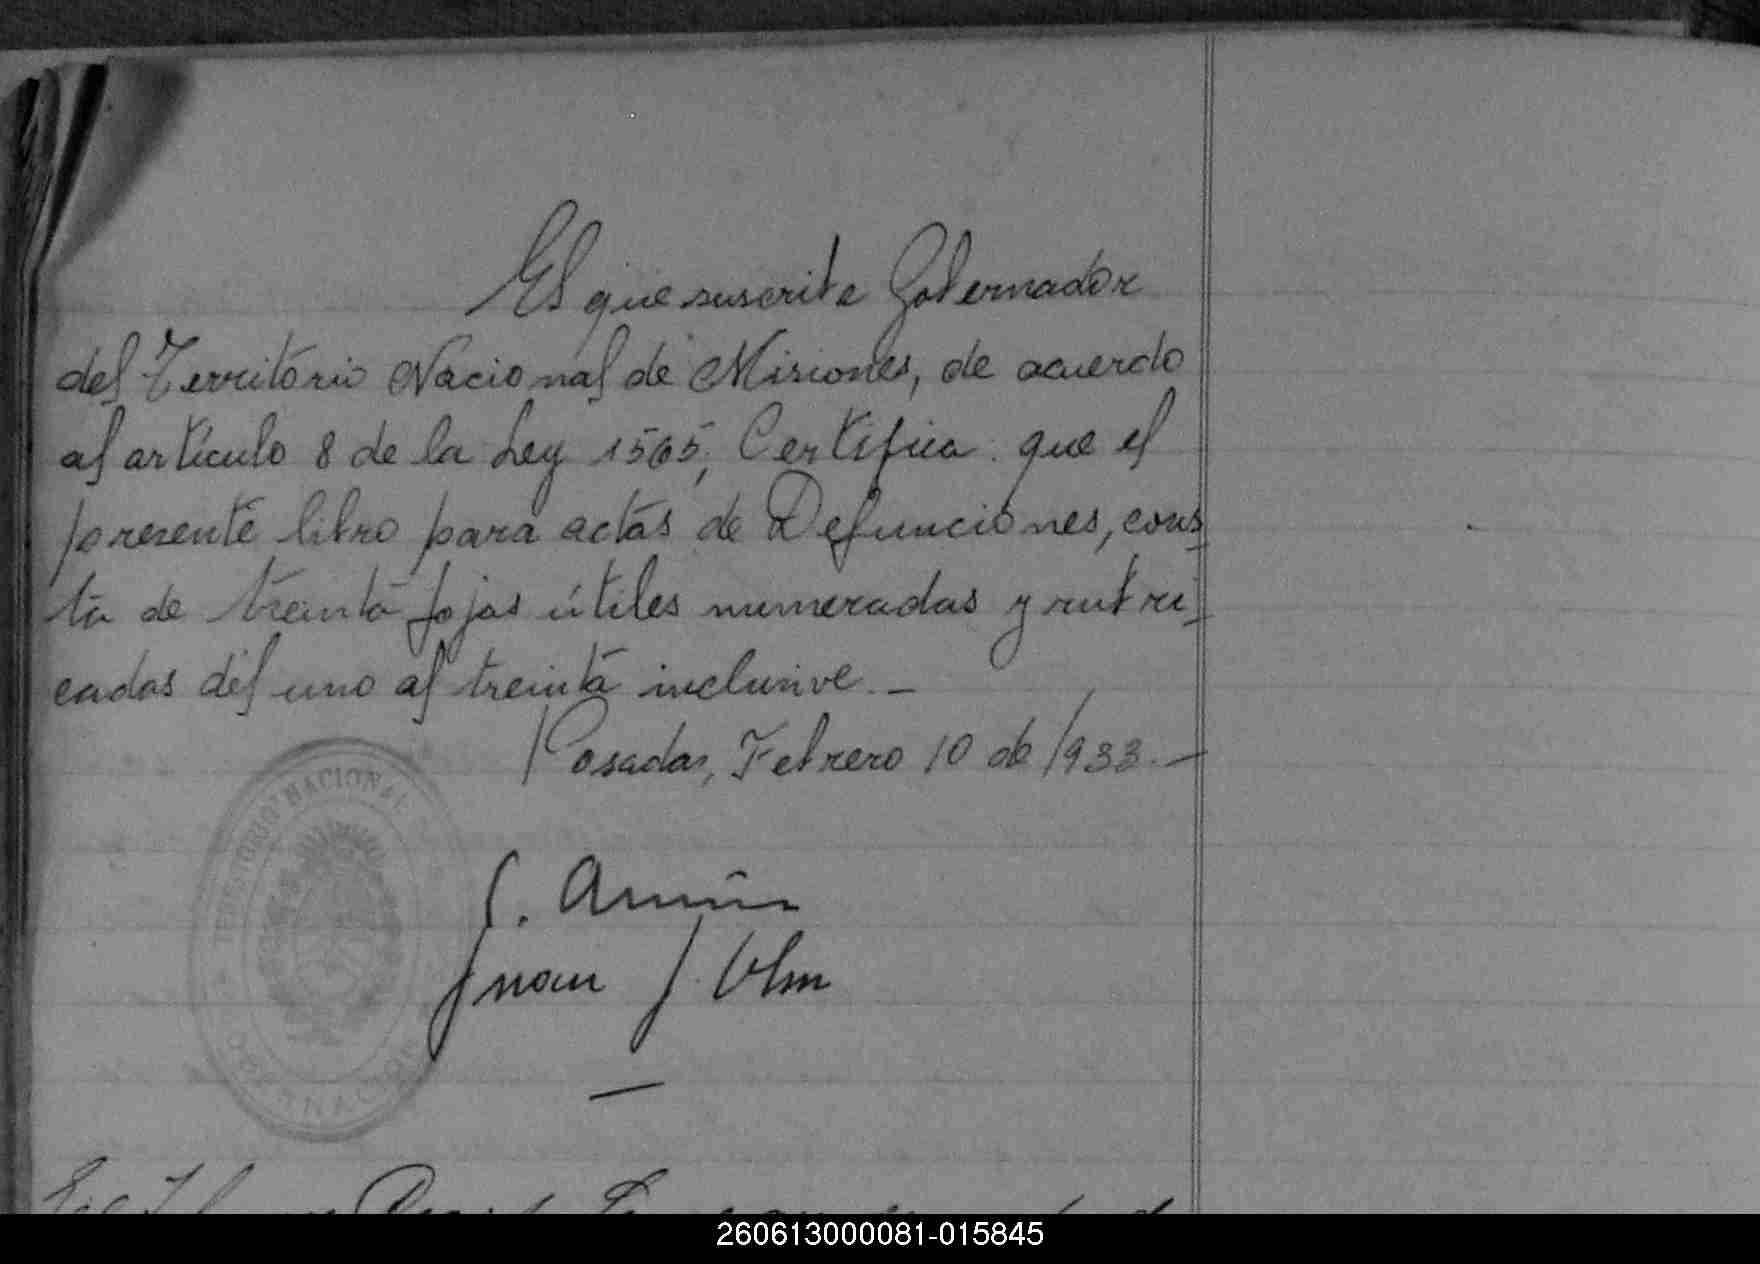 El que suscribe Gobernador
del Territorio Nacional de Misiones, de acuerdo
al artículo 8 de la Ley 1565, Certifica: que el
presente libro para actas de Defunciones, cons-
ta de treinta fojas útiles numeradas y rubri-
cadas del uno al treinta inclusive.—
Posadas, Febrero 10 de 1933.—
TERRITORIO NACIONAL
GOBERNACION
Juan J.
260613000081-015845